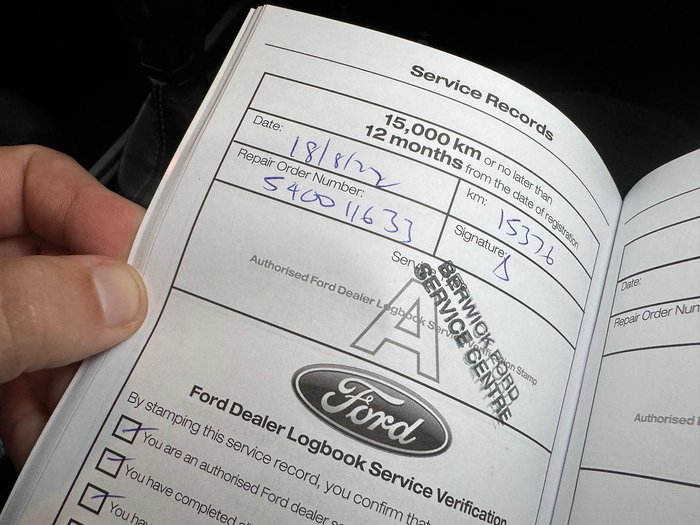 Service Records
15,000 km or no later than
12 months from the date of registration
Date:
18/8/22
km:
15376
Repair Order Number:
540011633
Signature:
Authorised Ford Dealer Logbook Service
Stamp
A
BERWICK FORD
SERVICE CENTRE
Ford
Ford Dealer Logbook Service Verification
By stamping this service record, you confirm that
You are an authorised Ford dealer
You have completed
You have
Date:
Repair Order
Authorised